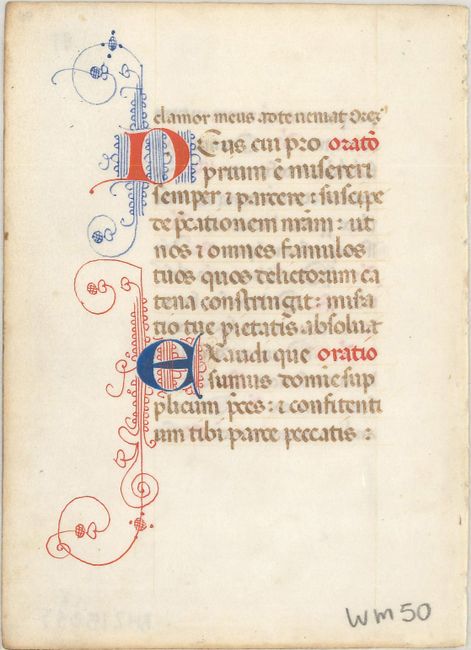 clamor meus ad te veniat Orẽs
DEus cui pro oratõ
prium ẽ misereri
semper ⁊ parcere : suscipe
dep̃cationem nr̃am : ut
nos ⁊ omnes famulos
tuos quos delictorum ca
tena constringit : misa
tio tue pietatis absoluat
EXaudi que oratio
sumus domine sup
plicum p̃ces : ⁊ confitenti
um tibi parce peccatis :
wm50